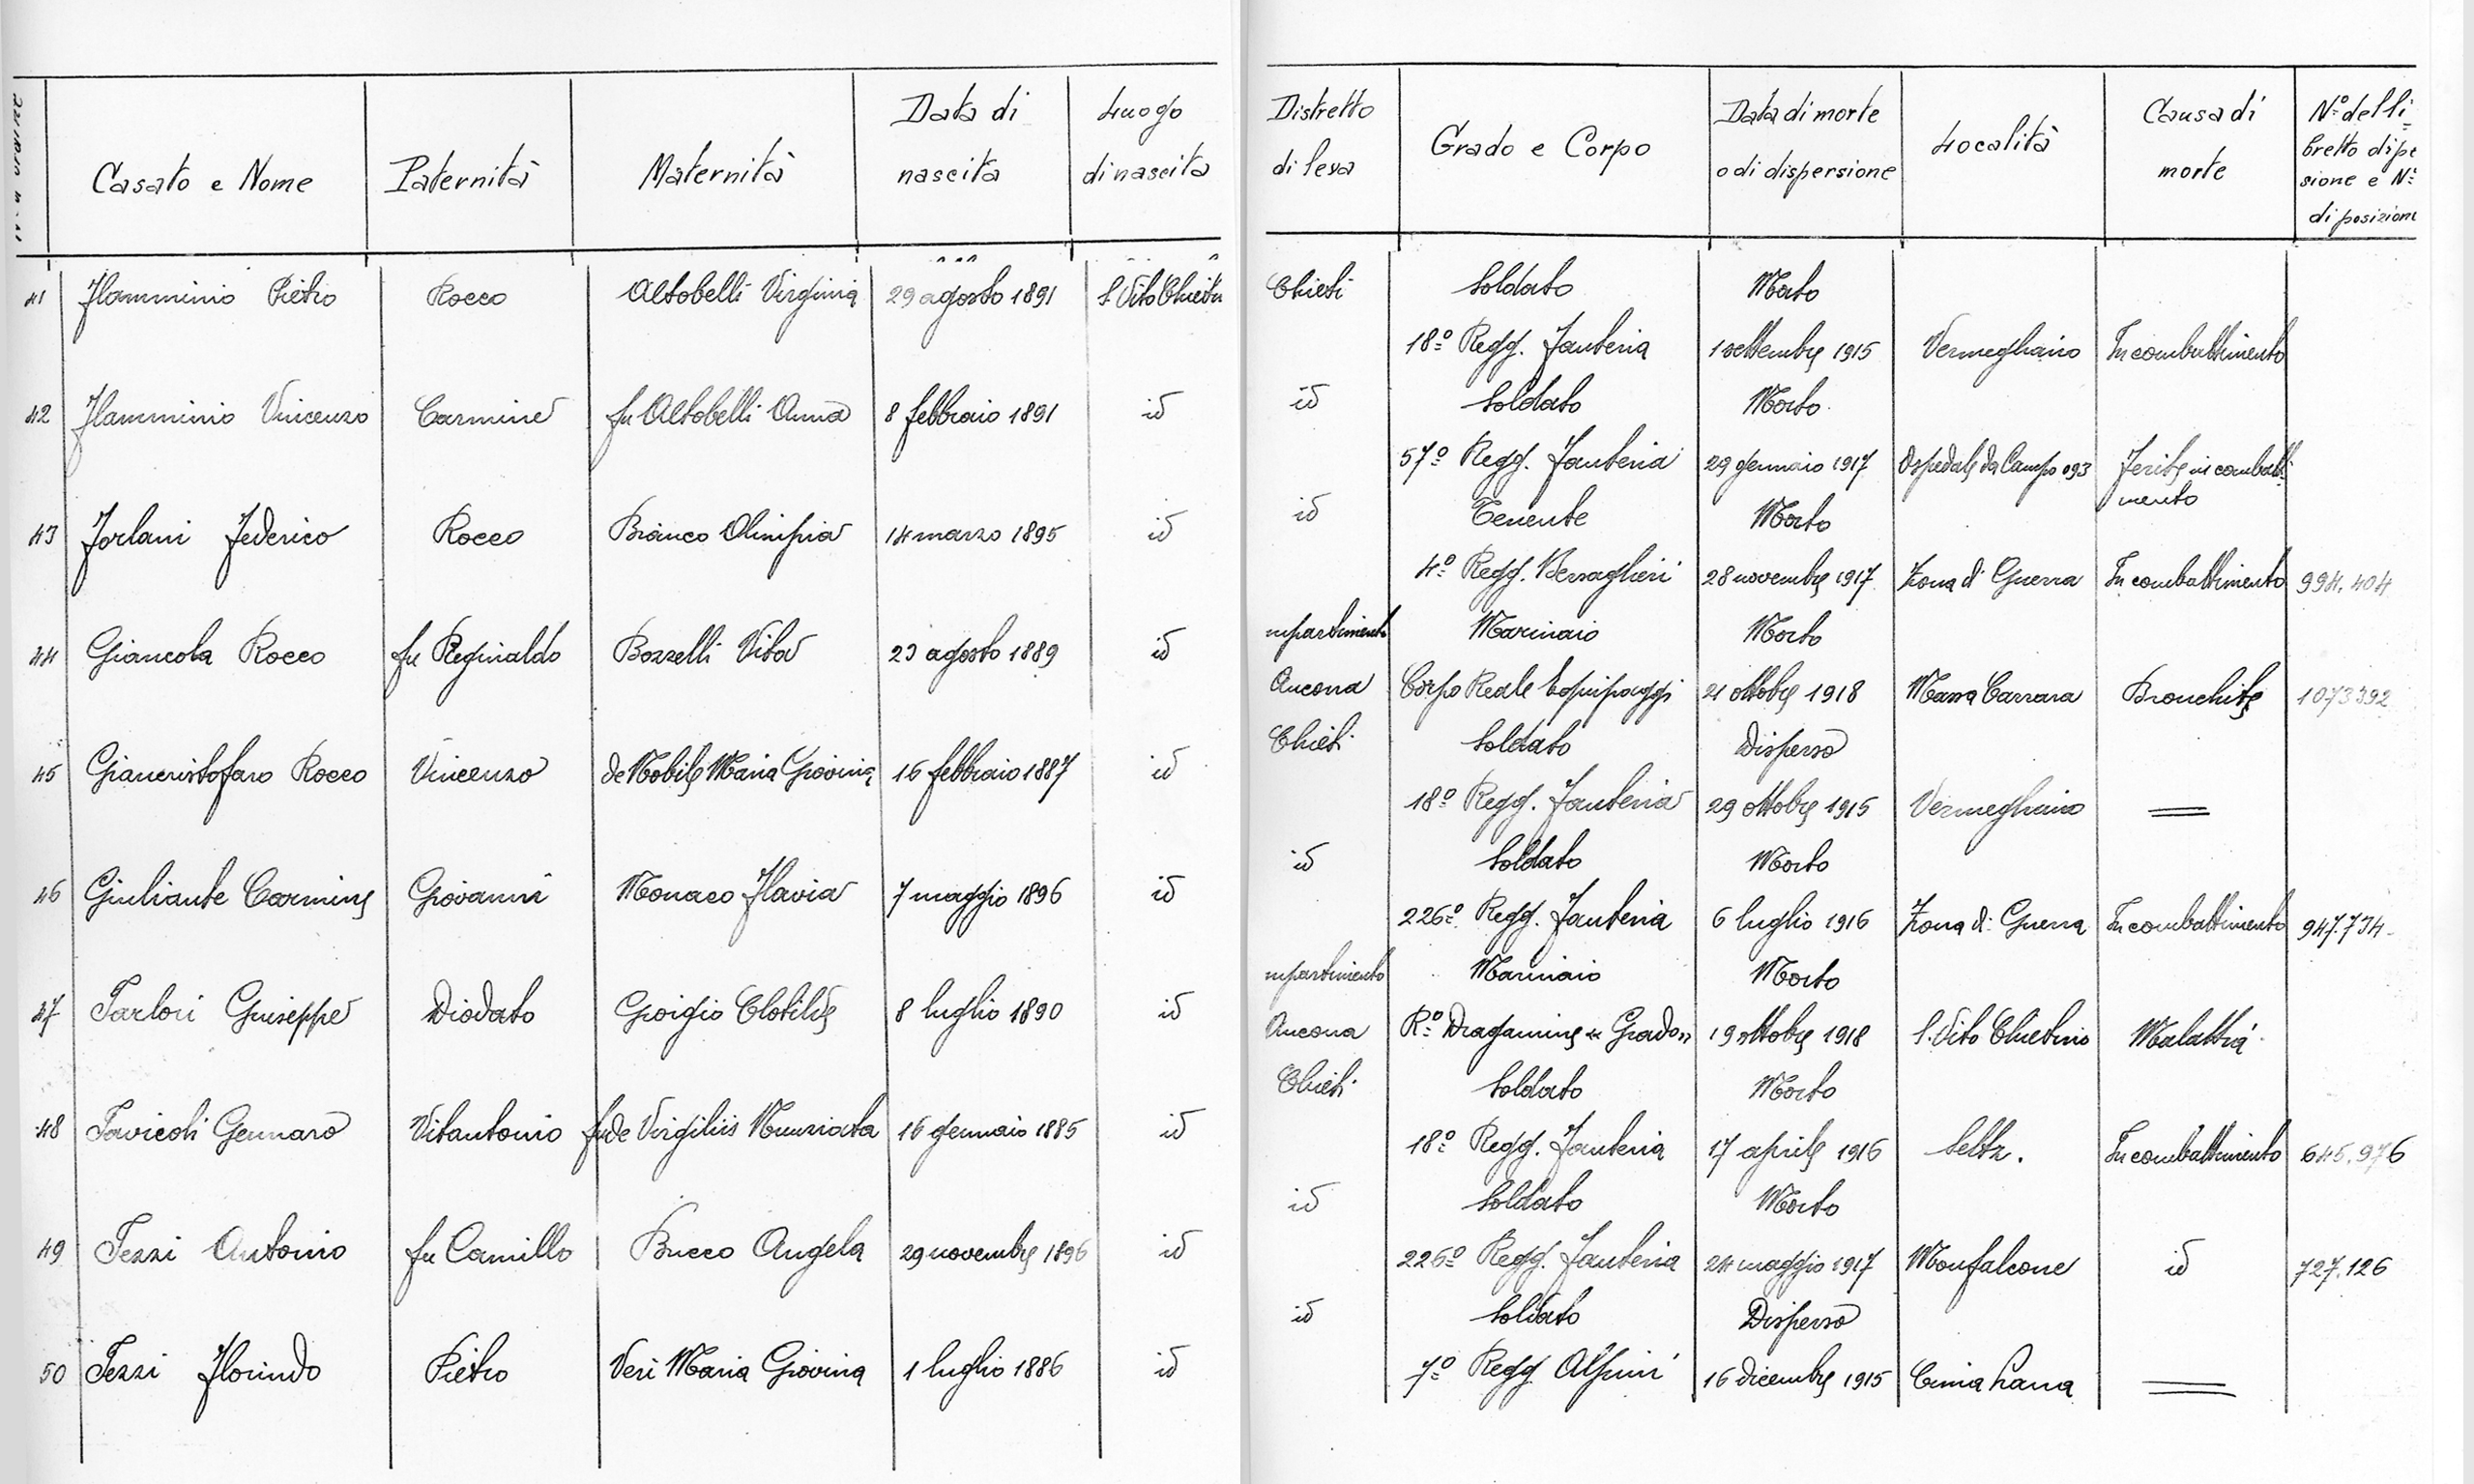 Casato e Nome Paternità Maternità Data di nascita Luogo di nascita
41 Flamminio Pietro Rocco Altobelli Virginia 29 agosto 1891 S. Vito Chietin
42 Flamminio Vincenzo Carmine fu Altobelli Anna 8 febbraio 1891 id
43 Forlani Federico Rocco Bianco Olimpia 14 marzo 1895 id
44 Giancola Rocco fu Reginaldo Bozzelli Vita 23 agosto 1889 id
45 Giancristofaro Rocco Vincenzo de Nobile Maria Giovina 16 febbraio 1887 id
46 Giuliante Carmine Giovanni Monaco Flavia 7 maggio 1896 id
47 Iarlori Giuseppe Diodato Giorgio Clotilde 8 luglio 1890 id
48 Iavicoli Gennaro Vitantonio fu de Virgiliis Nunziata 16 gennaio 1885 id
49 Iezzi Antonio fu Camillo Bucco Angela 29 novembre 1896 id
50 Iezzi Florindo Pietro Veri Maria Giovina 1 luglio 1886 id
Distretto di leva Grado e Corpo Data di morte o di dispersione Località Causa di morte N° del li= bretto di pe sione e N° di posizione
Chieti Soldato Morto
18° Regg. Fanteria 1 settembre 1915 Vermegliano In combattimento
id Soldato Morto
57° Regg. Fanteria 29 gennaio 1917 Ospedale da Campo 093 Ferite in combatti=
mento
id Tenente Morto
4° Regg. Bersaglieri 28 novembre 1917 Zona di Guerra In combattimento 994.404
mpartimento Marinaio Morto
Ancona Corpo Reale Equipaggi 21 ottobre 1918 Massa Carrara Bronchite 1073392
Chieti Soldato Disperso
18° Regg. Fanteria 29 ottobre 1915 Vermegliano =
id Soldato Morto
226° Regg. Fanteria 6 luglio 1916 Zona di Guerra In combattimento 947.734
mpartimento Marinaio Morto
Ancona R° Dragamine "Grado" 19 ottobre 1918 S. Vito Chietino Malattia
Chieti Soldato Morto
18° Regg. Fanteria 17 aprile 1916 Seltz. In combattimento 645.976
id Soldato Morto
226° Regg. Fanteria 24 maggio 1917 Monfalcone id 727.126
id Soldato Disperso
7° Regg Alpini 16 dicembre 1915 Cima Lana =